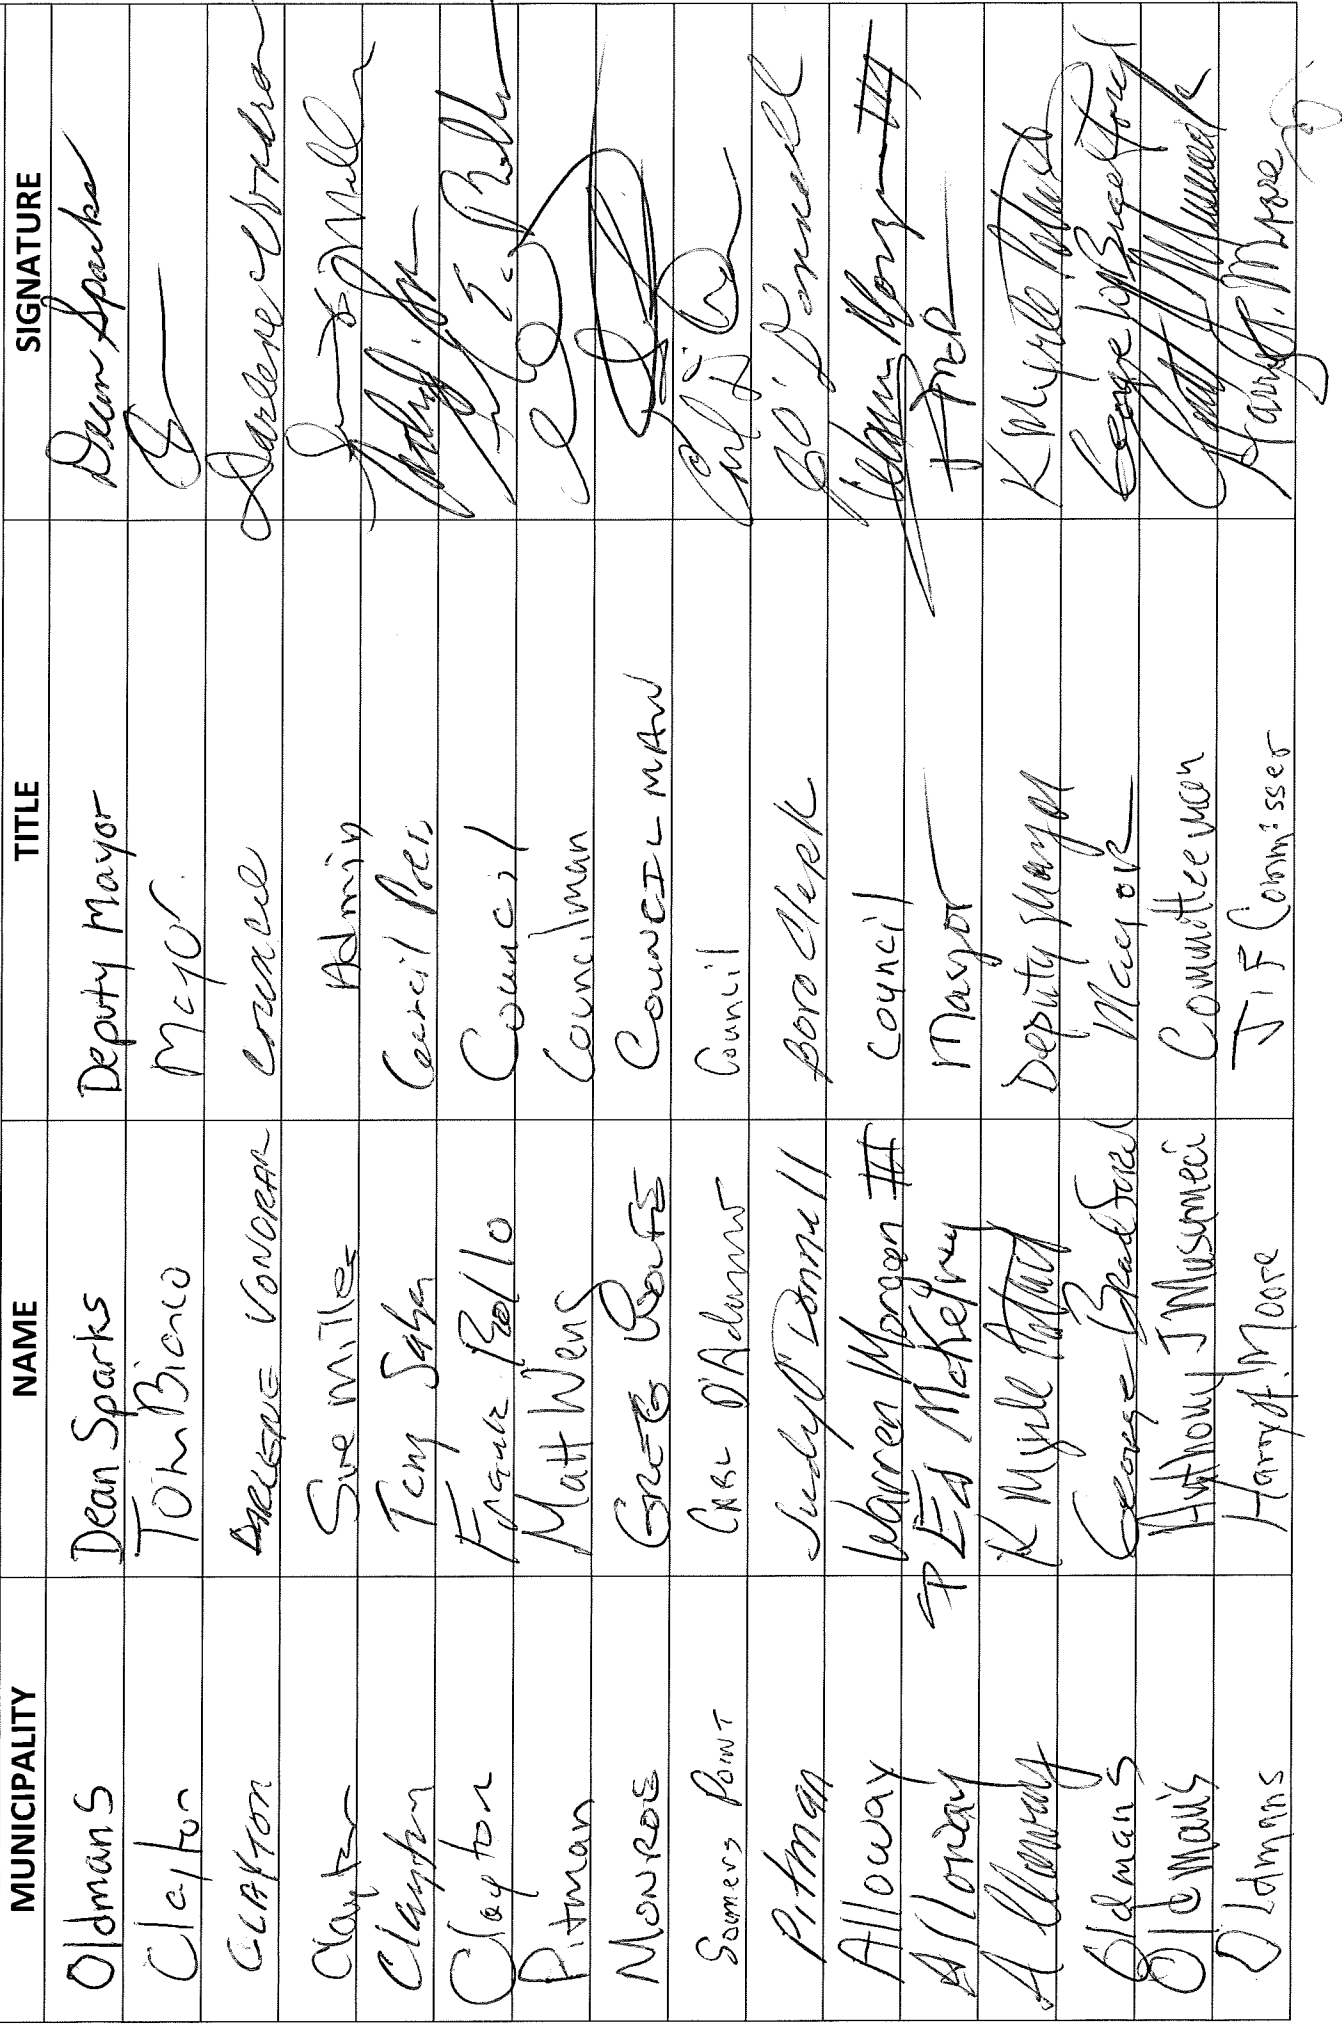 MUNICIPALITY NAME TITLE SIGNATURE
Oldmans Dean Sparks Deputy Mayor Dean Sparks
Clayton Tom Bianco Mayor
CLAYTON DARLENE VONDRAN Council Darlene Vondran
Clayton Sue Miller Admin
Clayton Tony Council Pres
Clayton Frank Rollo Council
Pitman Matt Weng Councilman
MONROE GREG WOLFE COUNCILMAN
Somers Point CARL D'Adamo Council
Pitman Judy O'Donnell Boro Clerk JO'Donnell
Alloway Warren Morgan III Council Warren Morgan III
Alloway P Ed McKelvey Mayor
Alloway K Myrle Patrick Deputy Mayor K Myrle Patrick
Oldmans George Bradford Mayor George Bradford
Oldmans Anthony J Musumeci Committeeman
Oldmans Harry A. Moore JIF Commisser Harry A. Moore